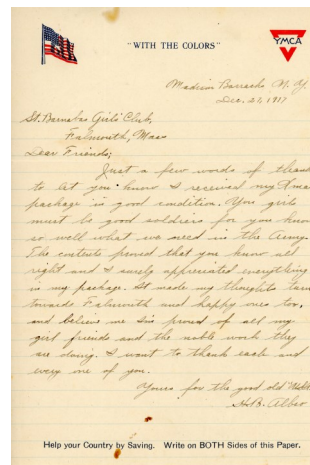 "WITH THE COLORS"
YMCA
Madison Barracks N. Y.
Dec. 21, 1917
St. Barnabas Girls' Club,
Falmouth, Mass
Dear Friends;
Just a few words of thanks
to let you know I received my Xmas
package in good condition. You girls
must be good soldiers for you know
so well what we need in the Army.
The contents proved that you know all
right and I surely appreciated everything
in my package. It made my thoughts turn
towards Falmouth and happy ones too,
and believe me I'm proud of all my
girl friends and the noble work they
are doing. I want to thank each and
every one of you.
Yours for the good old
H.B. Albro
Help your Country by Saving. Write on BOTH Sides of this Paper.